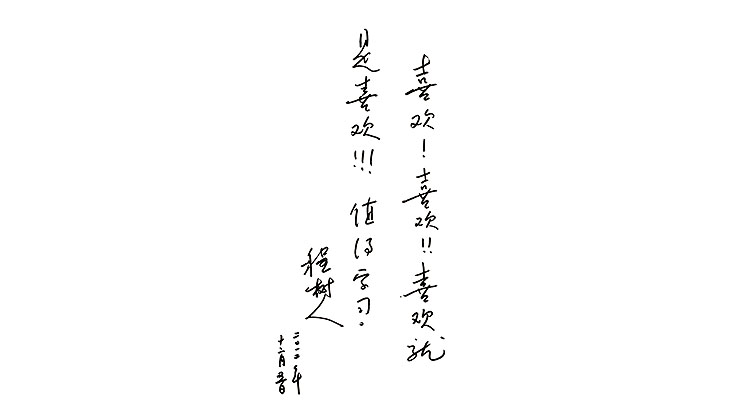 喜欢！喜欢！！喜欢就
是喜欢！！！值得学习。
程树人
二〇二〇年
十二月五日